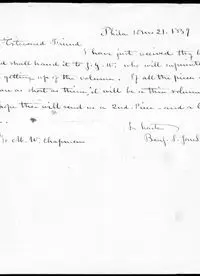 Phila 10 mo 21. 1837
Esteemed Friend
I have just received thy
d shall hand it to J. G. W. who will superinten
getting up of the volume. If all the pieces
are as short as thine, it'd be a thin volume
hope thee will send us a 2nd. Piece - and a l
In haste
M. W. Chapman
Benj. S. Jones